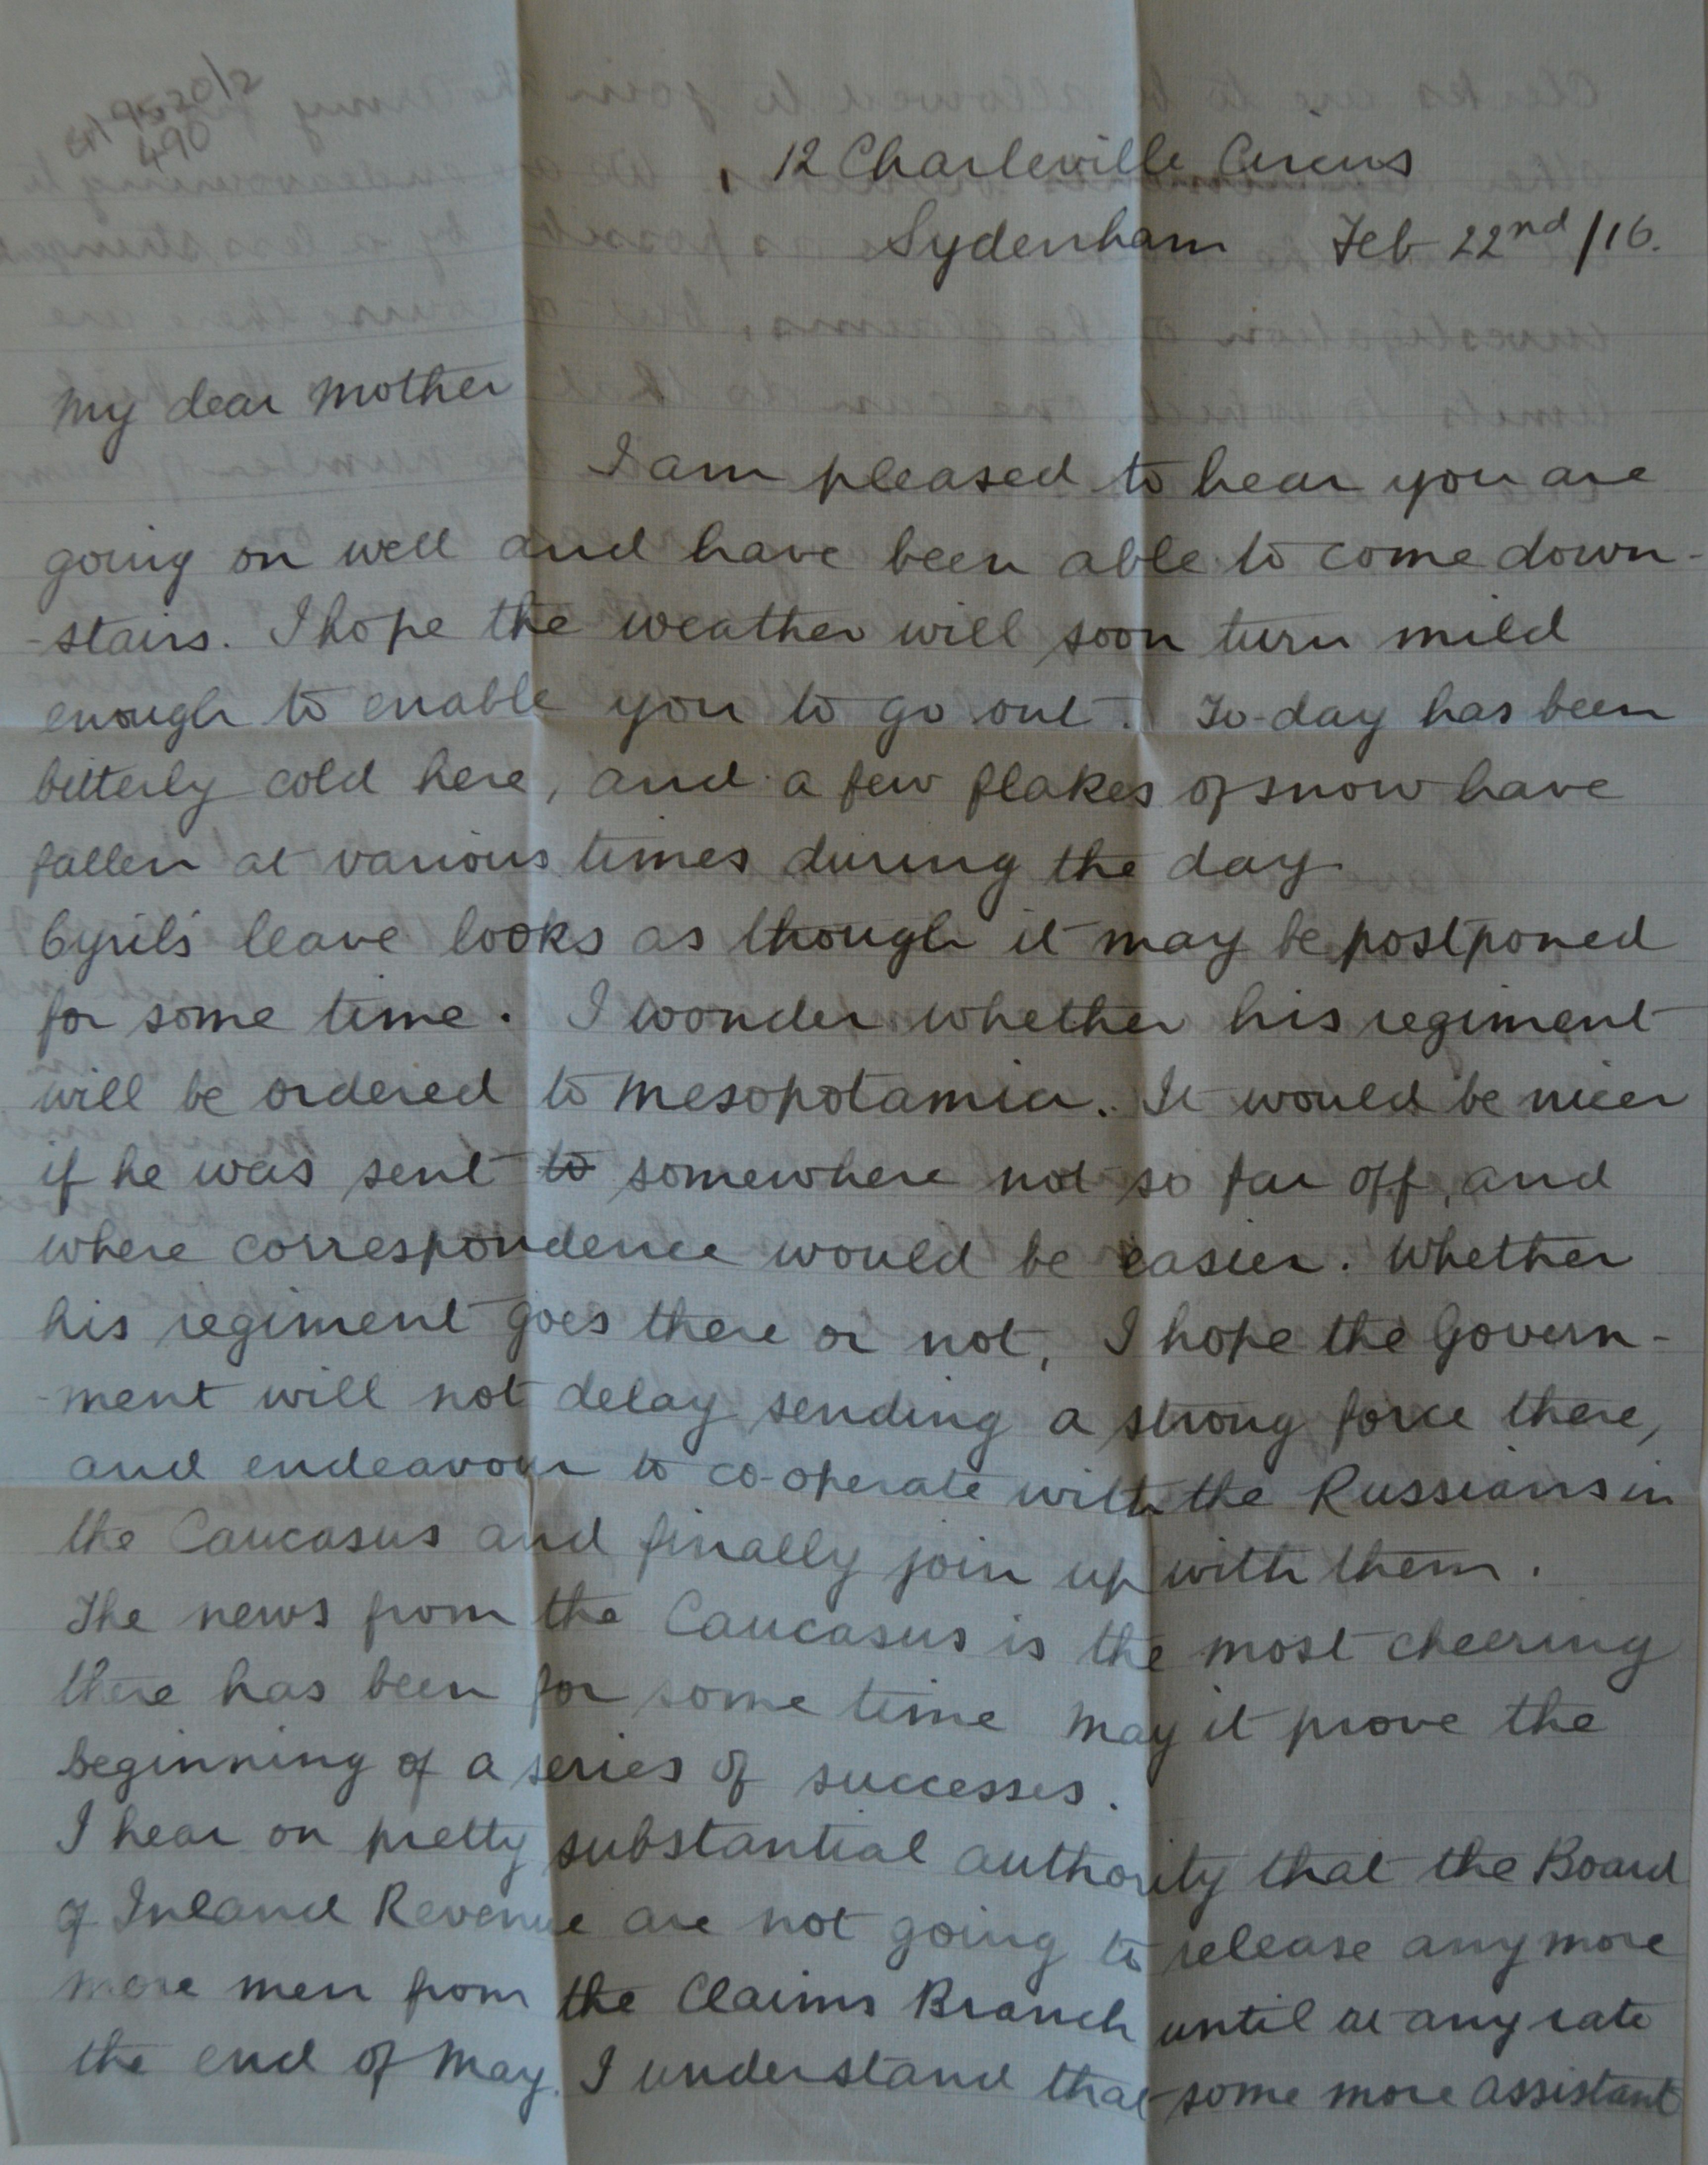 490
12 Charleville Circus
Sydenham Feb 22nd /16.
My dear Mother
I am pleased to hear you are
going on well and have been able to come down-
-stairs. I hope the weather will soon turn mild
enough to enable you to go out. To-day has been
bitterly cold here, and a few flakes of snow have
fallen at various times during the day
Cyril's leave looks as though it may be postponed
for some time. I wonder whether his regiment
will be ordered to Mesopotamia. It would be nicer
if he was sent to somewhere not so far off, and
where correspondence would be easier. Whether
his regiment goes there or not, I hope the Govern-
-ment will not delay sending a strong force there,
and endeavour to co-operate with the Russians in
the Caucasus and finally join up with them.
The news from the Caucasus is the most cheering
there has been for some time May it prove the
beginning of a series of successes.
I hear on pretty substantial authority that the Board
of Inland Revenue are not going to release any more
more men from the Claims Branch until at any rate
the end of May. I understand that some more assistant